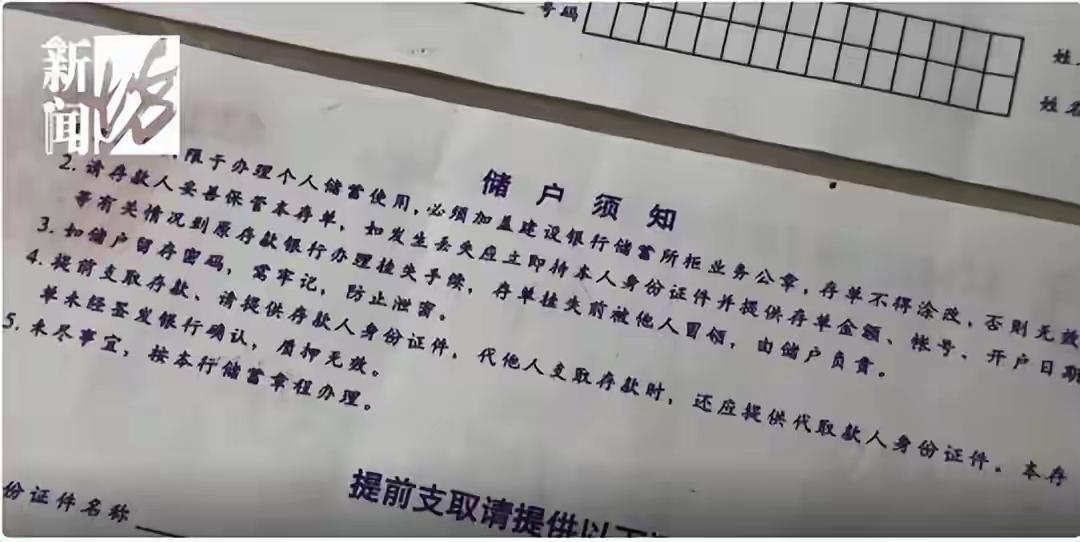 号码
姓
姓名
新闻坊
储 户 须 知
限于办理个人储蓄使用,必须加盖建设银行储蓄所柜业务公章,存单不得涂改,否则无效
2. 请存款人妥善保管本存单,如发生丢失应立即持本人身份证件并提供存单金额、帐号、开户日期
等有关情况到原存款银行办理挂失手续,存单挂失前被他人冒领,由储户负责。
3. 如储户留存密码,需牢记,防止泄密。
4. 提前支取存款、请提供存款人身份证件,代他人支取存款时,还应提供代取款人身份证件。本存
单未经签发银行确认,质押无效。
5. 未尽事宜,按本行储蓄章程办理。
提前支取请提供以下
份证件名称